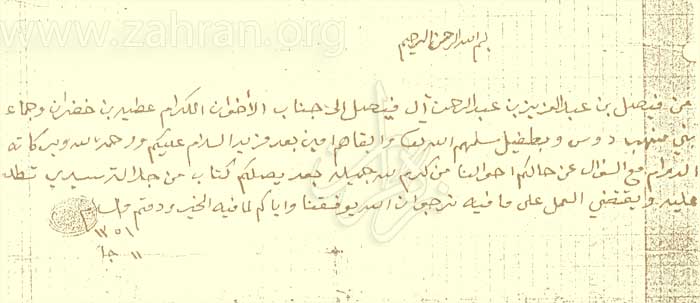 www.zahran.org
بسم الله الرحمن الرحيم
من فيصل بن عبد العزيز بن عبد الرحمن آل فيصل الى جناب الأخوان الكرام عطيه بن خضران وجماعة
بني منهب دوس وبطفيل سلمهم الله تعالى وابقاهم امين بعد مزيد السلام عليكم ورحمة الله وبركاته
الدوام مع السؤال عن حالكم احوالنا من كرم الله جميله بعد يصلكم كتاب من جلالة سيدي
عليه ويقتضي العمل على ما فيه نرجو ان الله يوفقنا واياكم لما فيه الخير ودمتم والسلام
١٣٥١
١١ جا